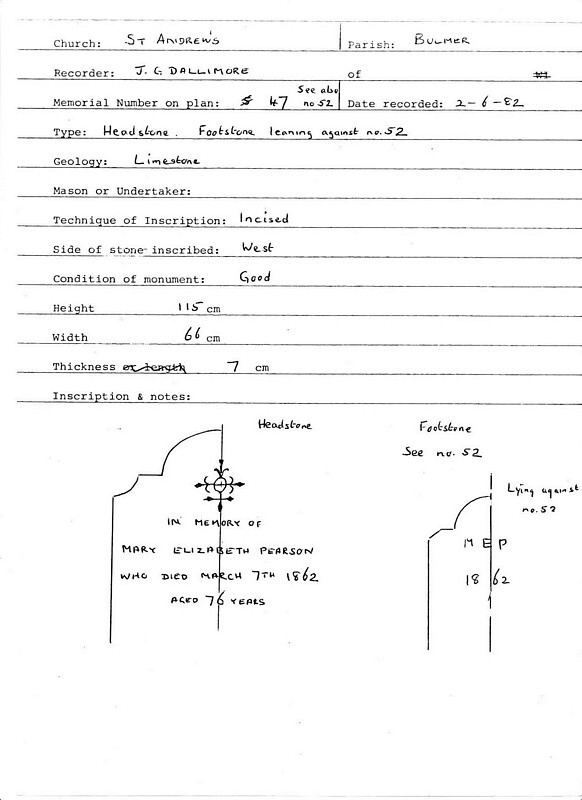 Church: ST ANDREW'S Parish: BULMER
Recorder: J. G DALLIMORE of
Memorial Number on plan: 47 See also no 52 Date recorded: 2-6-82
Type: Headstone. Footstone leaning against no. 52
Geology: Limestone
Mason or Undertaker:
Technique of Inscription: Incised
Side of stone inscribed: West
Condition of monument: Good
Height 115 cm
Width 66 cm
Thickness or length 7 cm
Inscription & notes:
Headstone
IN MEMORY OF
MARY ELIZABETH PEARSON
WHO DIED MARCH 7TH 1862
AGED 76 YEARS
Footstone
See no. 52
Lying against
no. 52
M E P
1862